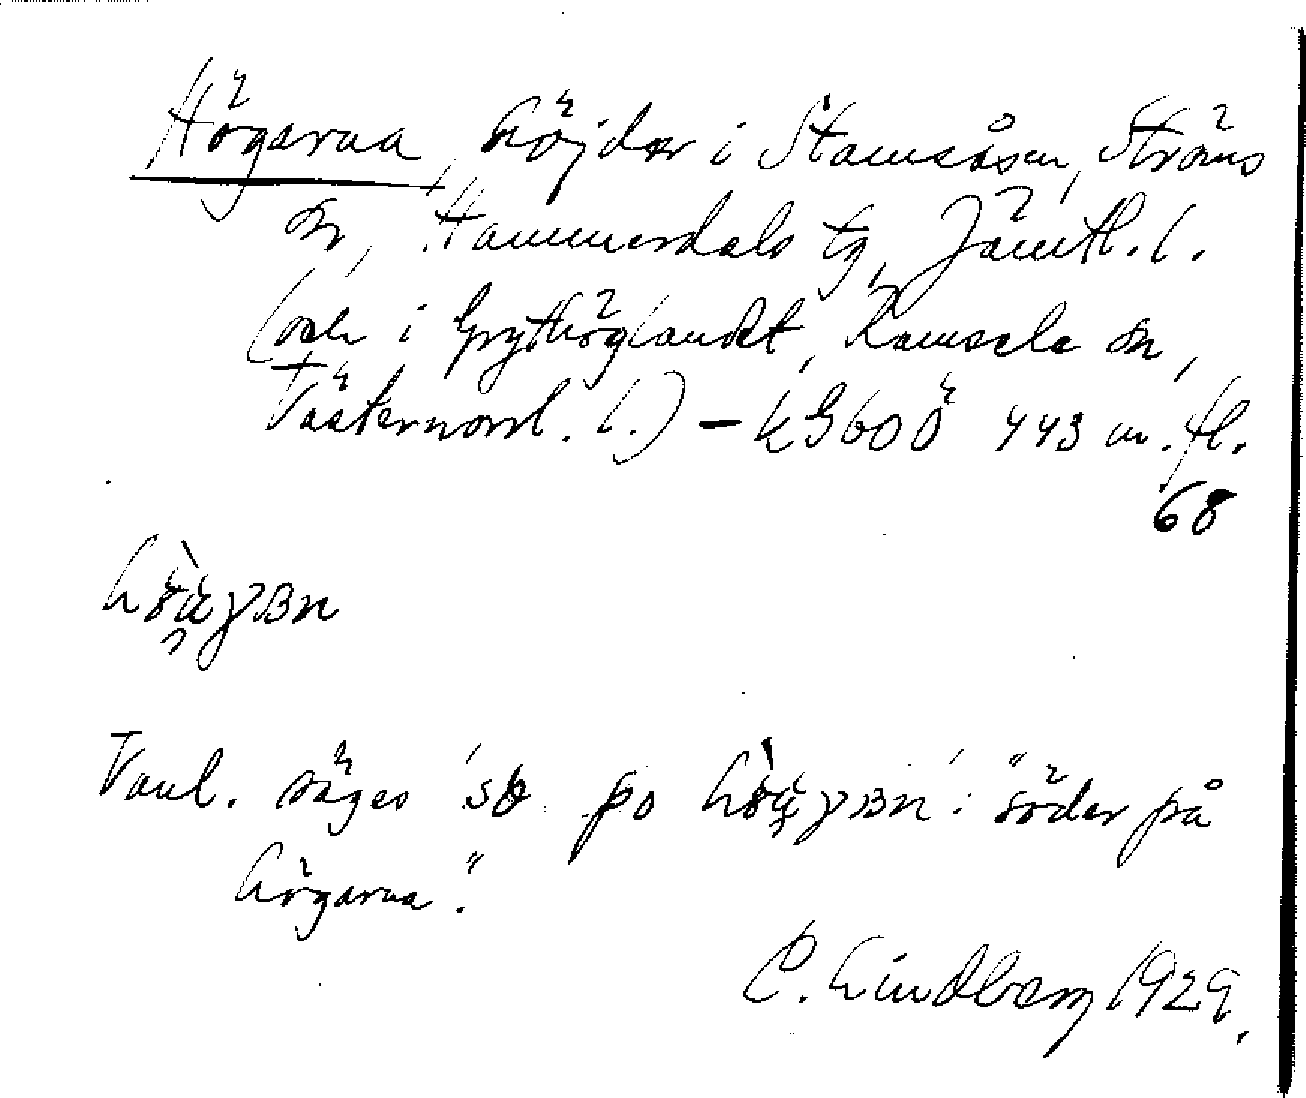 Högarna, höjder i Stamsåsen, Ströms
sn, Hammerdals tg, Jämtl. l.
(och i Grythöglandet, Ramsele sn,
Västernorrl. l.) – kG600 443 m. fl.
68
Vanl. säges 'sö po : "söder på
högarna".
C. Lindberg 1929.